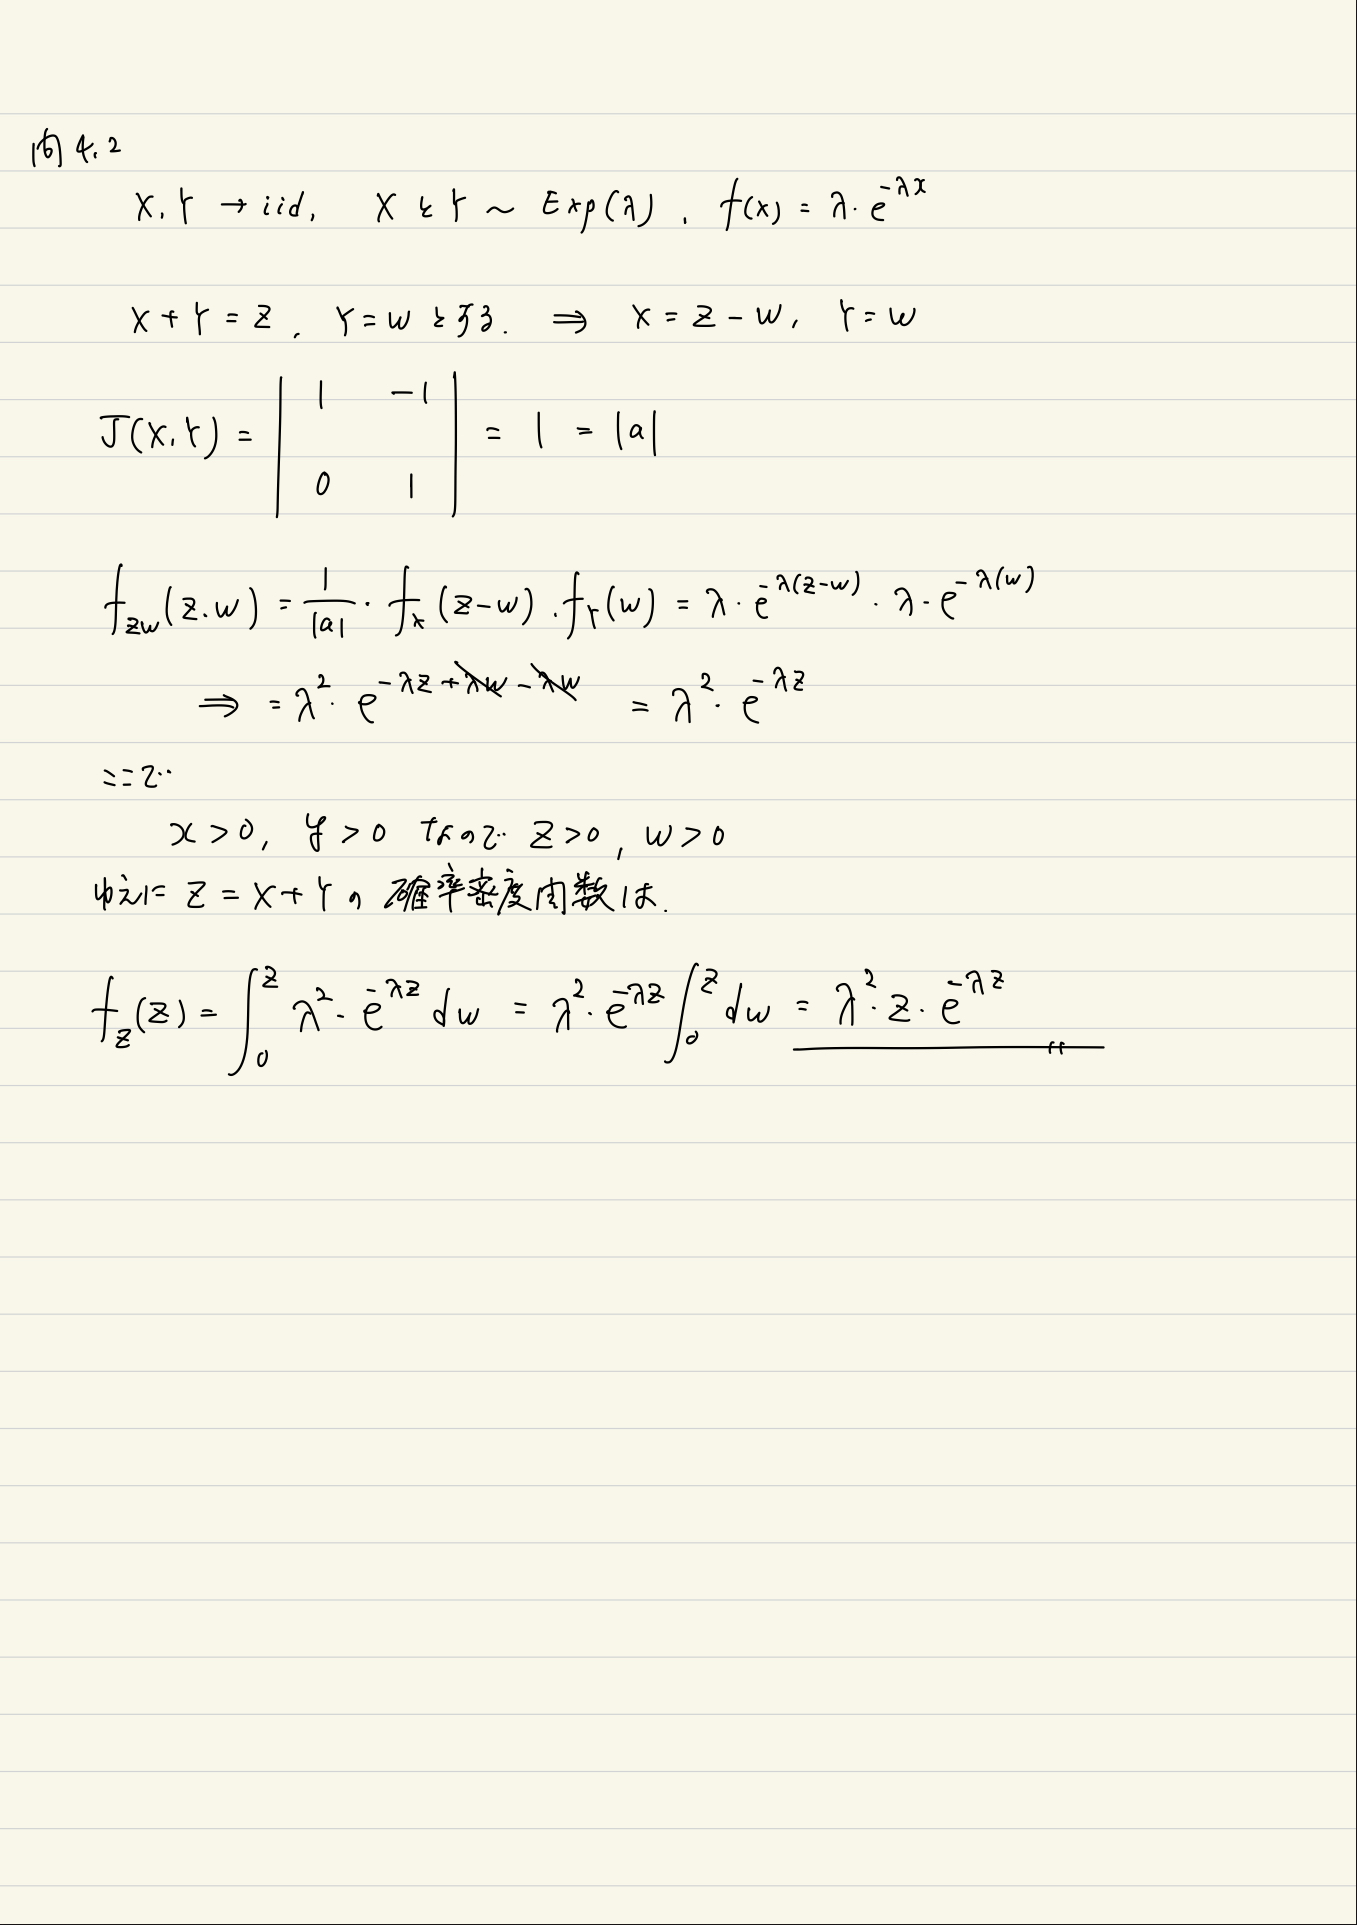 問4.2
X, Y → iid, X と Y ~ Exp(λ), f(x) = λ・e^{-λx}
X + Y = Z, Y = W とする. ⇒ X = Z - W, Y = W
J(X,Y) = | 1 -1 ; 0 1 | = 1 = |a|
f_{ZW}(Z.W) = 1/|a| ・ f_X(Z-W) . f_Y(W) = λ・e^{-λ(Z-W)}・λ・e^{-λ(W)}
⇒ = λ^2・e^{-λZ+λW-λW} = λ^2・e^{-λZ}
ここで
x > 0, y > 0 なので Z > 0, W > 0
ゆえに Z = X + Y の 確率密度関数は.
f_Z(Z) = ∫_0^Z λ^2・e^{-λZ} dw = λ^2・e^{-λZ} ∫_0^Z dw = λ^2・Z・e^{-λZ}